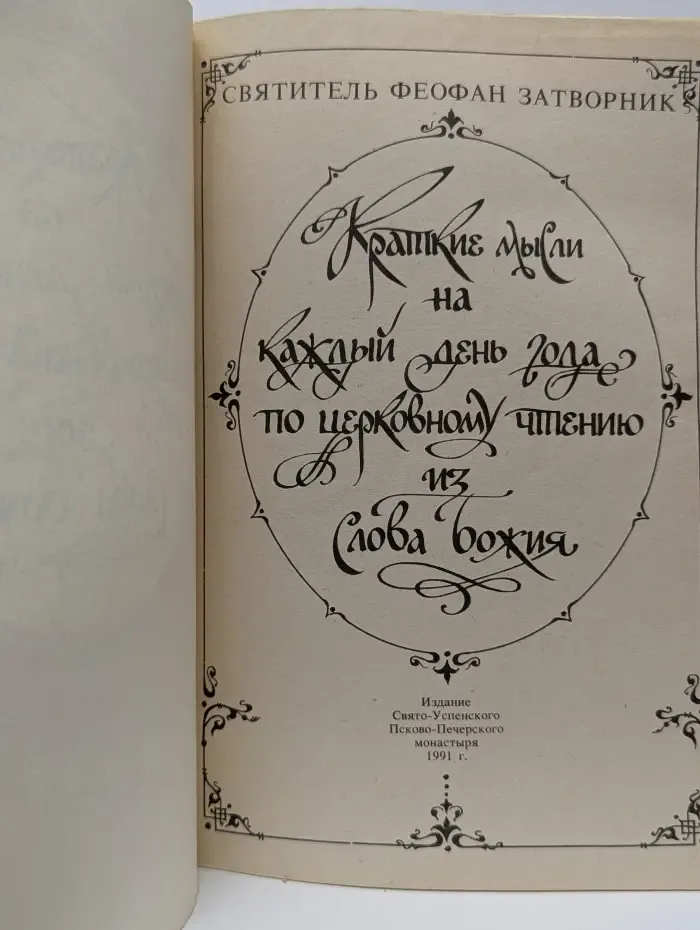 СВЯТИТЕЛЬ ФЕОФАН ЗАТВОРНИК
Краткие мысли
на
каждый день года
по церковному чтению
из
Слова Божия
Издание
Свято-Успенского
Псково-Печерского
монастыря
1991 г.